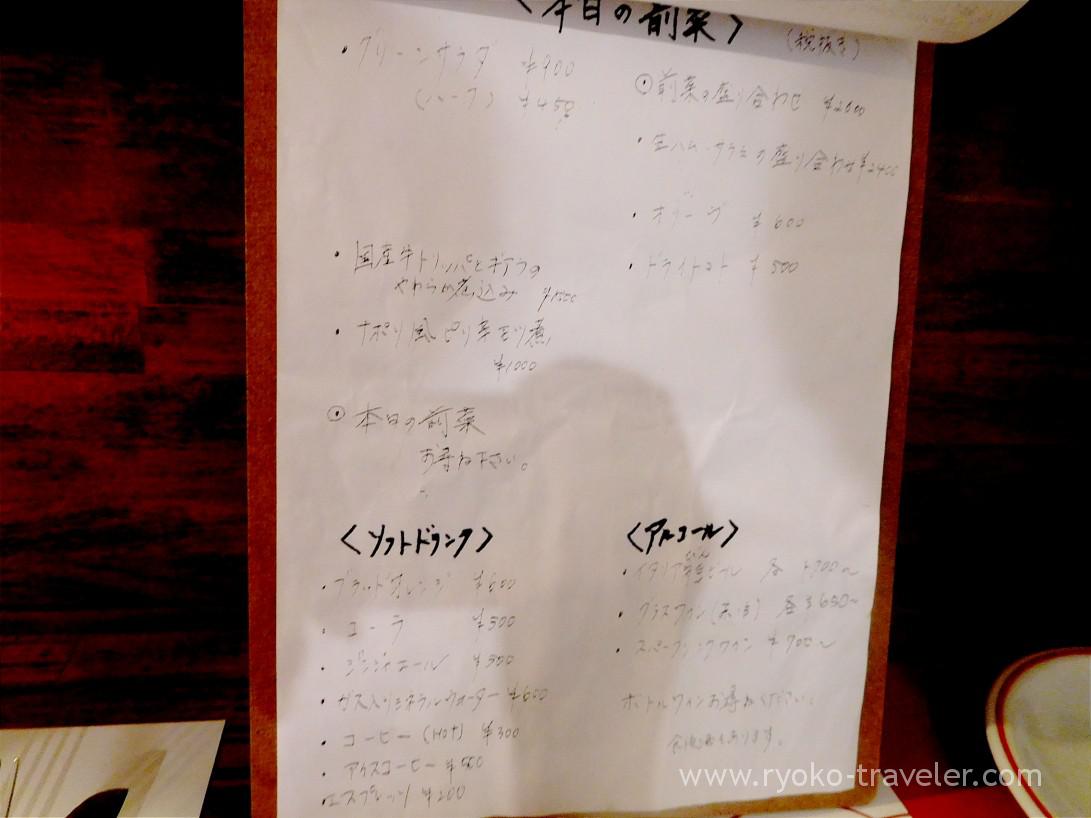 〈本日の前菜〉
(税抜き)
・グリーンサラダ ¥900
(ハーフ) ¥450
・国産牛トリッパとギアラの
やわらか煮込み ¥1500
・ナポリ風ピリ辛モツ煮
¥1000
⦿本日の前菜
お尋ね下さい。
⦿前菜の盛り合わせ ¥2000
・生ハム・サラミの盛り合わせ ¥2400
・オリーブ ¥600
・ドライトマト ¥500
〈ソフトドリンク〉
・ブラッドオレンジ ¥600
・コーラ ¥500
・ジンジャエール ¥500
・ガス入りミネラルウォーター ¥600
・コーヒー (HOT) ¥300
・アイスコーヒー ¥500
・エスプレッソ ¥200
〈アルコール〉
・イタリア ビール 各 ¥700〜
・グラスワイン(赤・白) 各¥650〜
・スパークリングワイン ¥700〜
ボトルワインお尋ねください。
食後酒もあります。
www.ryoko-traveler.com